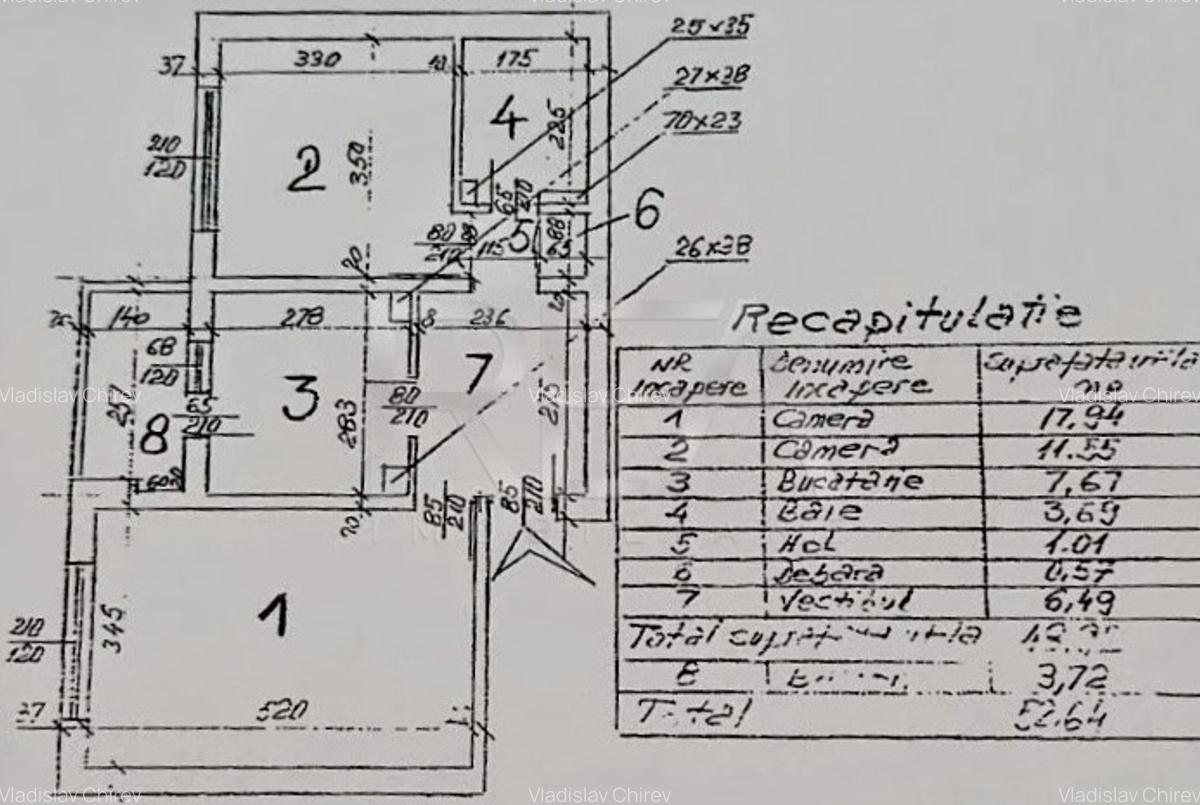 Vladislav Chirev Vladislav Chirev Vladislav Chirev
25×35
37 330 10 175
27×38
4 225
70×23
210
120
2 350
65
210
6
80
210
88 115 5 88
26×38
20
20
Recapitulatie
140 278 8 236
NR
incapere
Denumire
incapere
Suprafata utila
68
120
Vladislav Chirev Vladislav Chirev Vladislav Chirev
3 7
80
210
85
210
8 283
1 Camera 17,94
2 Camera 11.55
3 Bucatarie 7,67
4 Baie 3,69
5 Hol 1.01
6 Debara 0,57
7 Vestibul 6,49
60
85
210
85
210
20
1 345
210
120
Total utila
8 3,72
37 520
Total 52.64
Vladislav Chirev Vladislav Chirev Vladislav Chirev